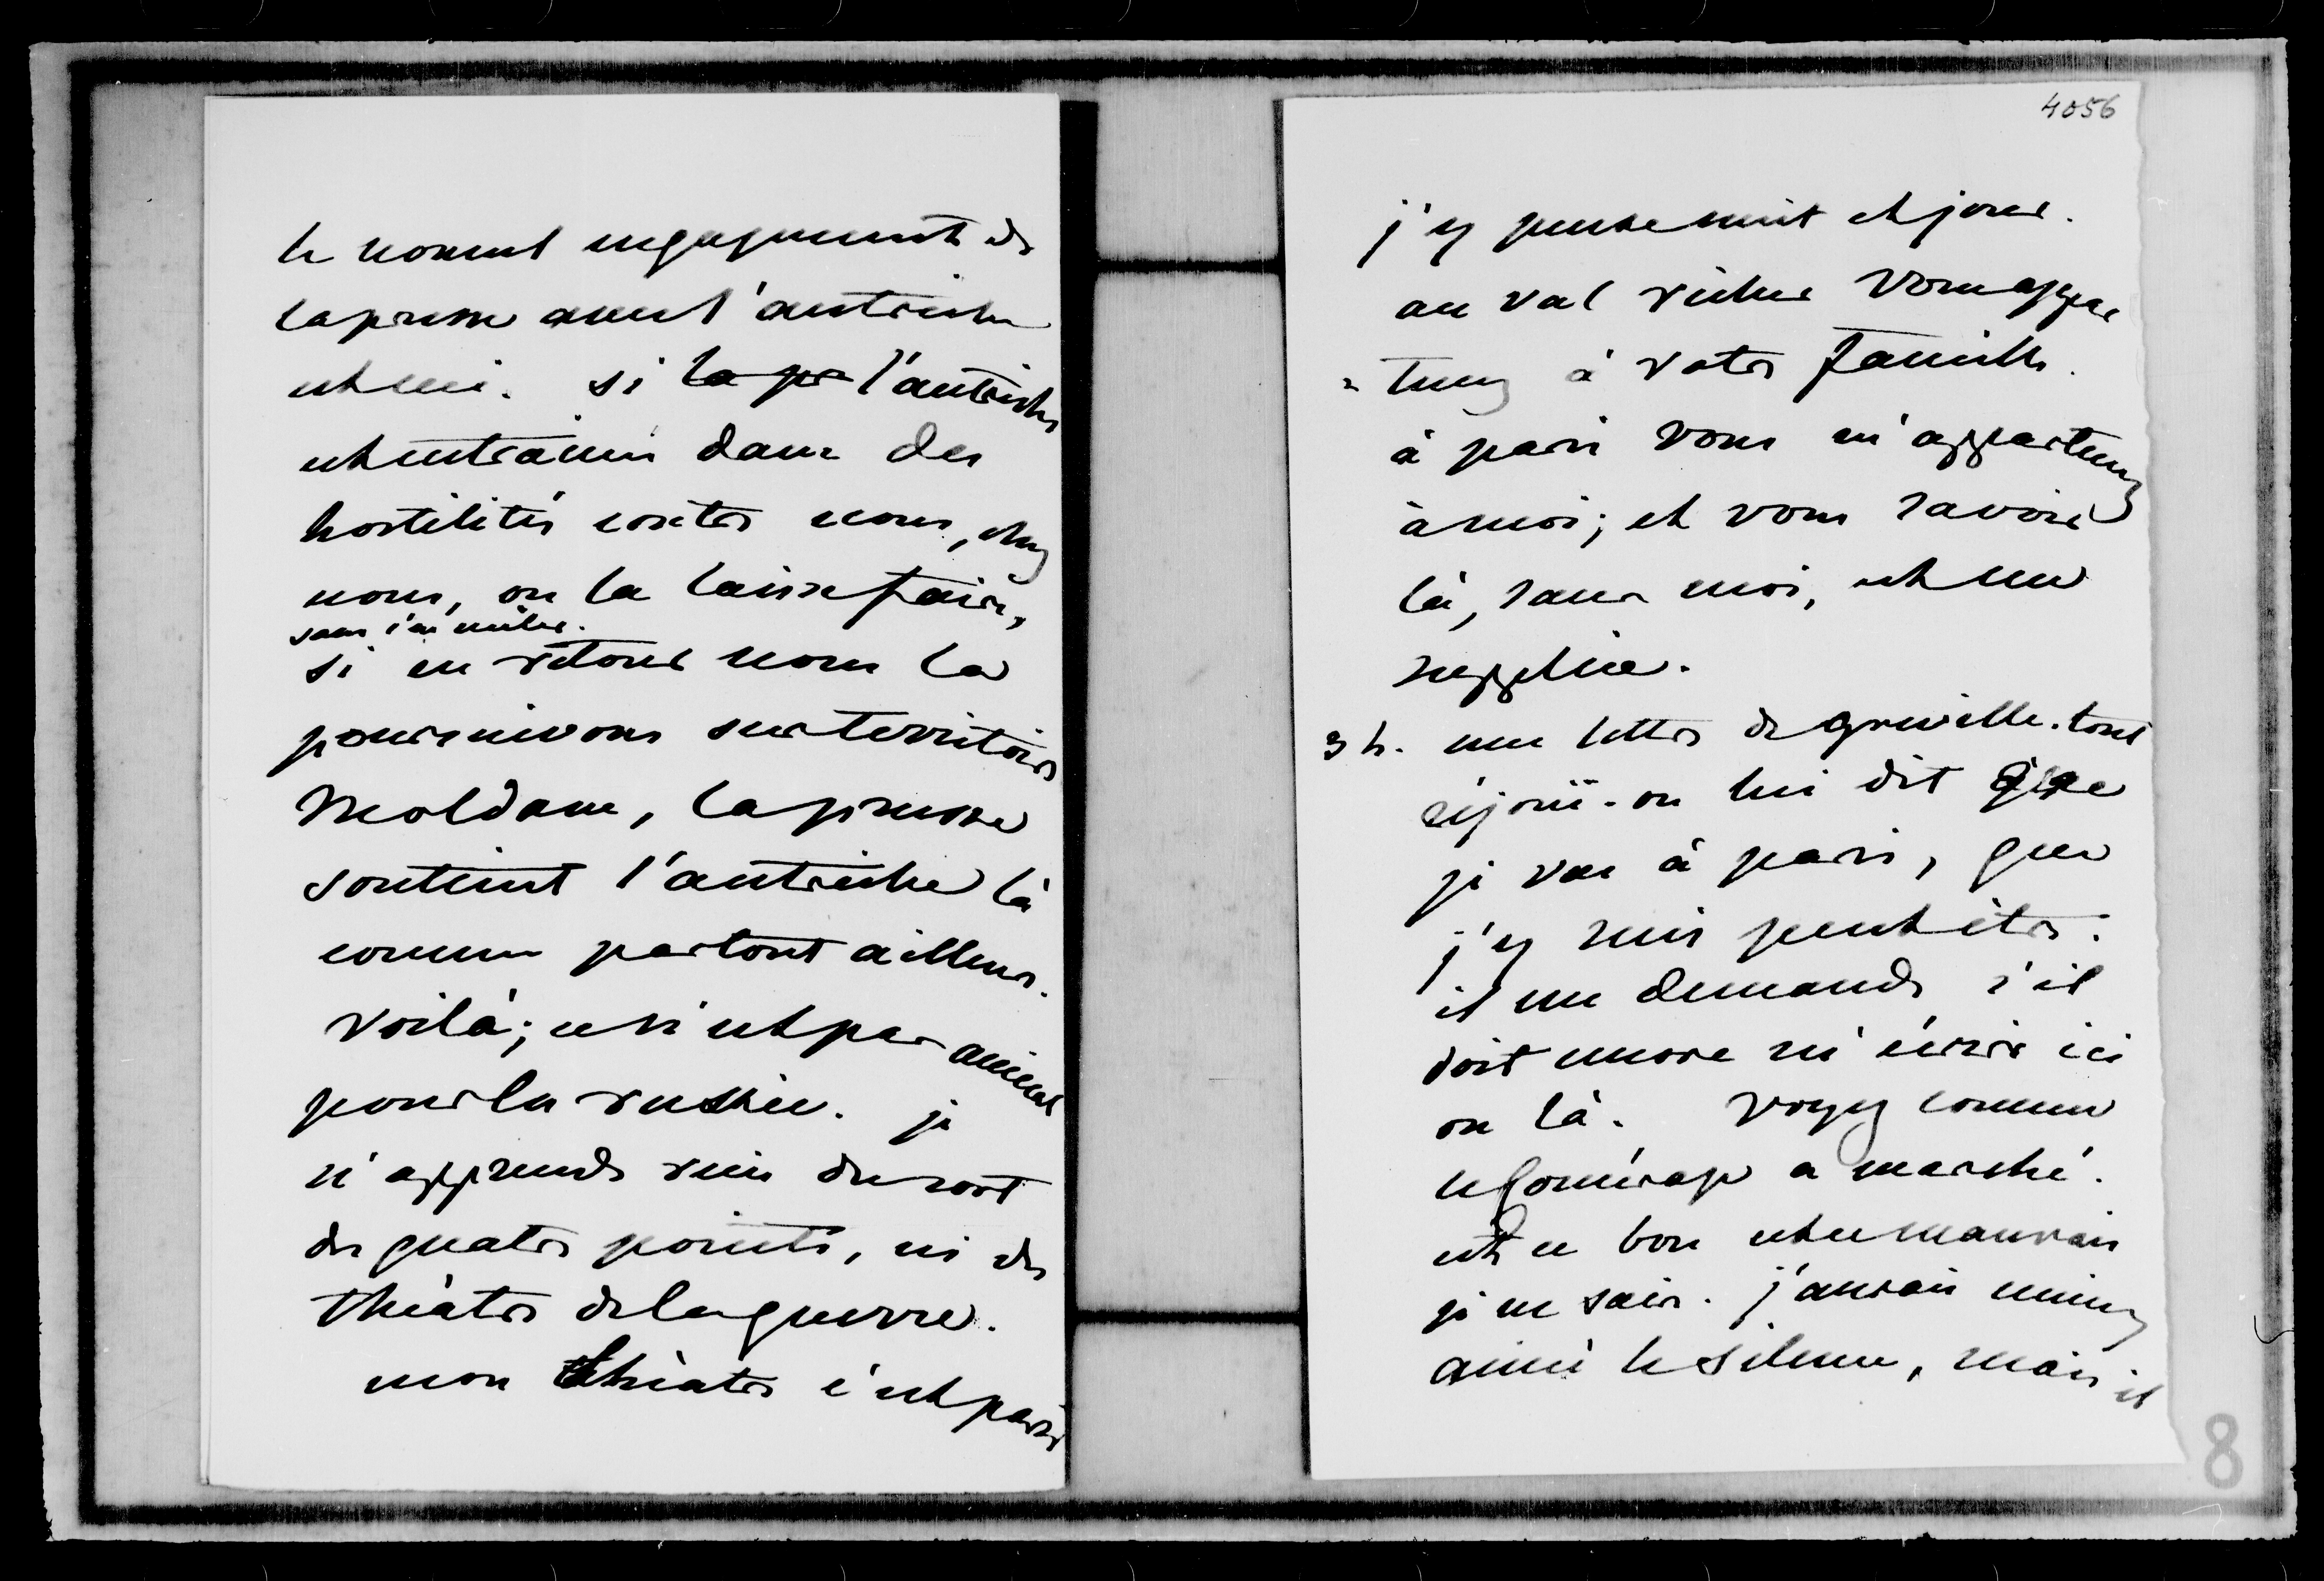 le nouvel engagement de
la prusse avec l'autriche
est ceci. si la pr l'autriche
est entrainée dans des
hostilités contre nous, chez
nous, on la laisse faire,
sans s'en mêler.
si en retour nous la
poursuivons sur territoire
Moldave, la prusse
soutient l'autriche là
comme partout ailleurs.
voilà; ce n'est pas amical
pour la russie. je
n'apprends rien du sort
des quatre points, ni du
théâtre de la guerre.
mon théâtre c'est paris
4056
j'y pense nuit et jour.
au val richer vous appar
= tenez à votre famille.
à paris vous m'appartenez
à moi; et vous savoir
là, sans moi, est un
supplice.
3 h. une lettre de greville. tout
réjouï. on lui dit que
je vais à paris, que
j'y suis peut être.
il me demande s'il
doit encore m'écrire ici
ou là. voyez comme
le commérage a marché.
est ce bon est ce mauvais
je ne sais. j'aurais mieux
aimé le silence, mais il
8